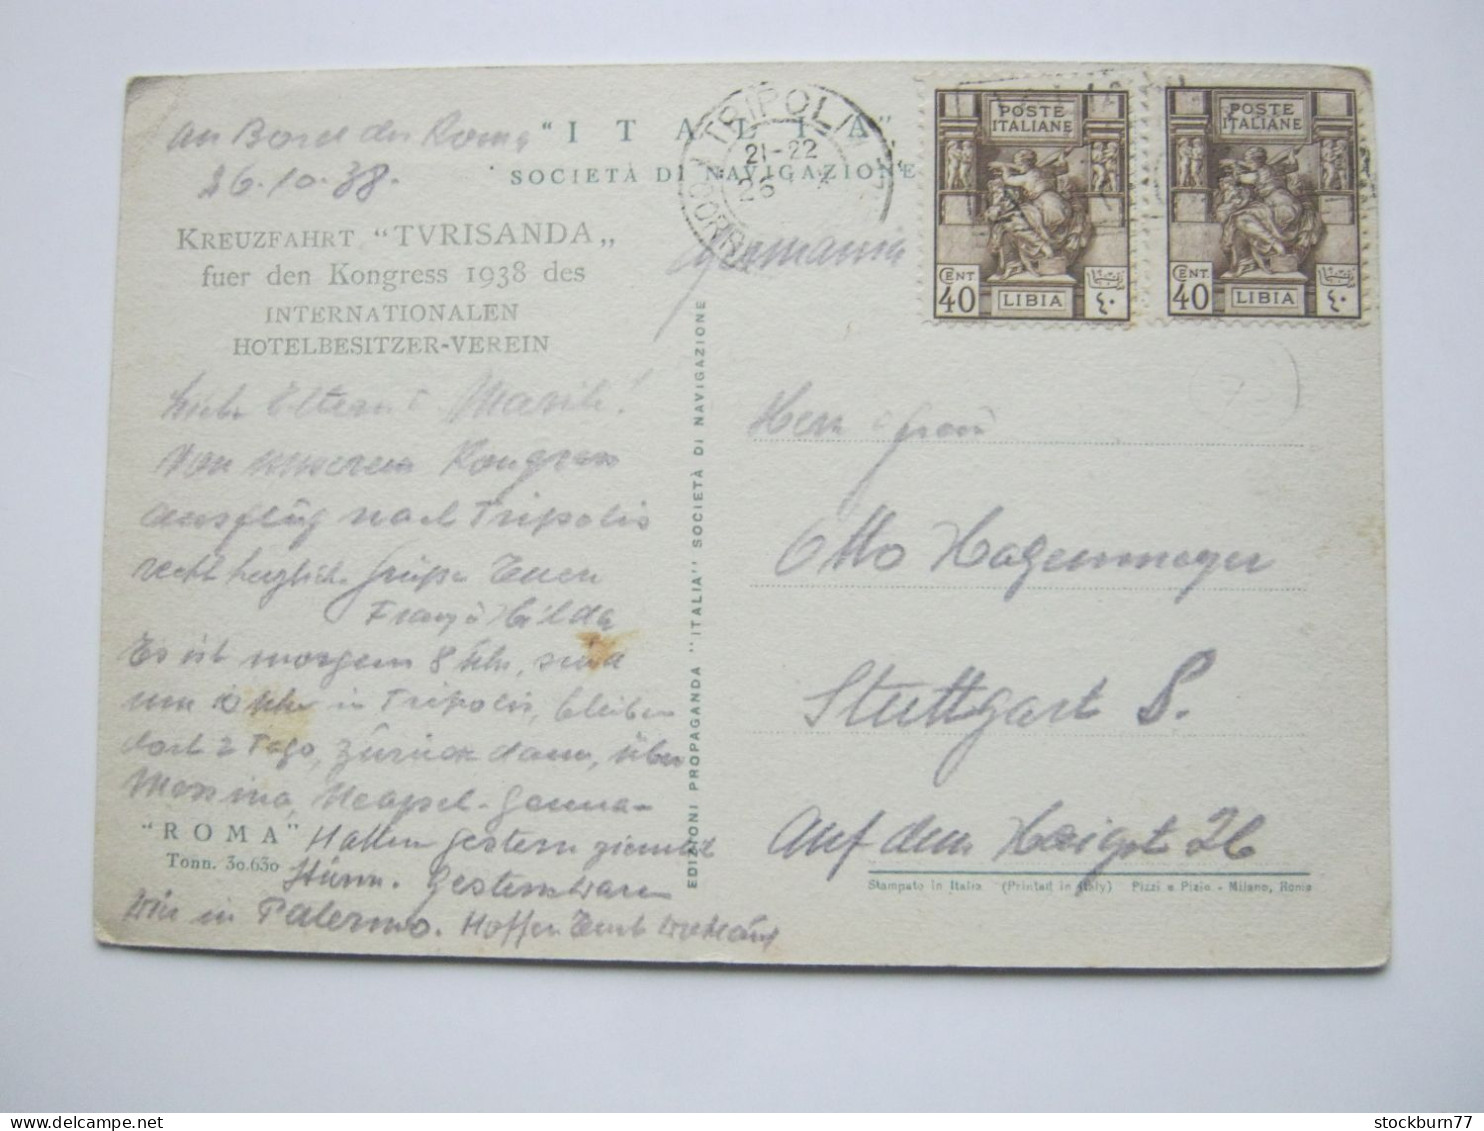 an Bord der Roma
26.10.38.
"ITALIA"
SOCIETÀ DI NAVIGAZIONE
KREUZFAHRT "TVRISANDA"
fuer den Kongress 1938 des
INTERNATIONALEN
HOTELBESITZER-VEREIN
Liebe Eltern
Von unserem Kongress
ausflug nach Tripolis
recht herzliche Grüße Euch
Hilda
Es ist morgens 8 Uhr, sind
um Uhr in Tripolis, bleiben
dort 2 Tage, zurück dann über
Messina, Neapel-Genua-
"ROMA"
Tonn. 30.630
Hatten gestern ziemlich
Sturm. Gestern waren
wir in Palermo. Hoffen Euch wohlauf
EDIZIONI PROPAGANDA "ITALIA" SOCIETÀ DI NAVIGAZIONE
TRIPOLI
21-22
26 X
CORR
Germania
POSTE
ITALIANE
CENT
40
LIBIA
٤٠
POSTE
ITALIANE
CENT.
40
LIBIA
٤٠
Herr Frau
Otto Hagenmeyer
Stuttgart S.
Auf dem Haigst 26
Stampato in Italia (Printed in Italy) Pizzi e Pizio - Milano, Roma
stockburn77